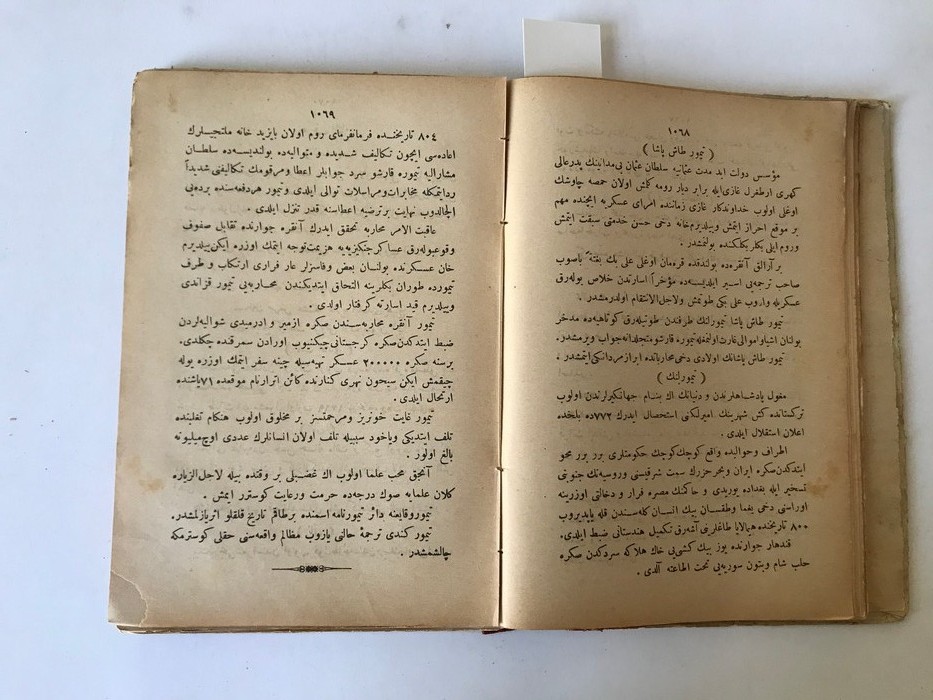 ١٠٦٨
( تيمور طاش پاشا )
مؤسس دولت ابد مدت عثمانيه سلطان عثمان بى‌مدانينك پدر عالى
كهرى ارطغرل غازى ايله برابر ديار رومه كلمش اولان حمصه چاوشك
اوغلى اولوب خداوندكار غازى زماننده امراى عسكريه ايچنده مهم
بر موقع احراز ايتمش وييلديرم خانه دخى حسن خدمتى سبقت ايتمش
وروم ايلى بكلربكلكنده بولنمشدر .
بر آرالق آنقره‌ده بولندقده قره‌مان اوغلى على بك بغتةً باصوب
صاحب ترجمه‌يى اسير ايلديسه‌ده مؤخراً اسارتدن خلاص بوله‌رق
عسكرله واروب على بكى طوتمش ولاجل الانتقام اولدرمشدر .
تيمور طاش پاشا تيمورلنك طرفندن طوتيله‌رق كوتاهيه‌ده مدخر
بولنان اشيا و اموالى غارت اولنمغله تيموره قارشو متجلدانه جواب ويرمشدر .
تيمور طاش پاشانك اولادى دخى محارباتده ابراز مردانكى ايتمشدر .
( تيمورلنك )
مغول پادشاهلرندن و دنيانك اك بنام جهانكيرلرندن اولوب
تركستانده كش شهرينك اميرلكنى استحصال ايدرك ٧٧٢ ده بلخده
اعلان استقلال ايلدى .
اطراف وحواليده واقع كوچك كوچك حكومتلرى برر برر محو
ايتدكدن صكره ايران وبحر خزرك سمت شرقيسنى وروسيه‌نك جنوبنى
تسخير ايله بغداده يوريدى و حاكمك مصره فرار و دخالتى اوزرينه
اوراسنى دخى يغما وطقسان بيك انسان كله‌سندن قله ياپديروب
٨٠٠ تاريخنده هيمالايا طاغلرينى آشه‌رق تكميل هندستانى ضبط ايلدى .
قندهار جوارنده يوز بيك كشى‌يى خاك هلاكه سردكدن صكره
حلب شام وبتون سوريه‌يى تحت اطاعته آلدى .
١٠٦٩
٨٠٤ تاريخنده فرمانفرماى روم اولان بايزيد خانه ملتجيلرك
اعاده‌سى ايچون تكاليف شديده و متواليه‌ده بولنديسه‌ده سلطان
مشاراليه تيموره قارشو سرد جوابلر اعطا و مرقومك تكاليفنى شديداً
رد ايتمكله مخابرات و مراسلات توالى ايلدى وتيمور هر دفعه‌سنده برده‌يى
الچالدوب نهايت بر ترضيه اعطاسنه قدر تنزل ايلدى .
عاقبت الامر محاربه تحقق ايدرك آنقره جوارنده تقابل صفوف
وقوعبوله‌رق عساكر جنكيزيه به هزيمت توجه ايتمك اوزره ايكن ييلديرم
خان عسكرنده بولنان بعض وفاسزلر عار فرارى ارتكاب و طرف
تيمورده طوران بكلرينه التحاق ايتديكندن محاربه‌يى تيمور قزاندى
وييلديرم قيد اسارته كرفتار اولدى .
تيمور آنقره محاربه‌سندن صكره ازمير و ادرميدى شواليه‌لردن
ضبط ايتدكدن صكره كرجستانى چيكنيوب اورادن سمرقنده چكلدى .
بر سنه صكره ٢٠٠٠٠٠ عسكر تهيه‌سيله چينه سفر ايتمك اوزره يوله
چيقمش ايكن سيحون نهرى كنارنده كائن اترار نام موقعده ٧١ ياشنده
ارتحال ايلدى .
تيمور غايت خونريز ومرحمتسز بر مخلوق اولوب هنكام تغلبنده
تلف ايتديكى وياخود سببيله تلف اولان انسانلرك عددى اوچ ميليونه
بالغ اولور .
آنجق محب علما اولوب اك غضبلى بر وقتنده بيله لاجل الزياره
كلان علمايه صوك درجه‌ده حرمت ورعايت كوسترر ايمش .
تيمور وقايعنه دائر تيمورنامه اسمنده بر طاقم تاريخ قلقلو اثر يازلمشدر .
تيمور كندى ترجمهٔ حالنى يازوب مظالم واقعه‌سنى حقلى كوسترمكه
چالشمشدر .